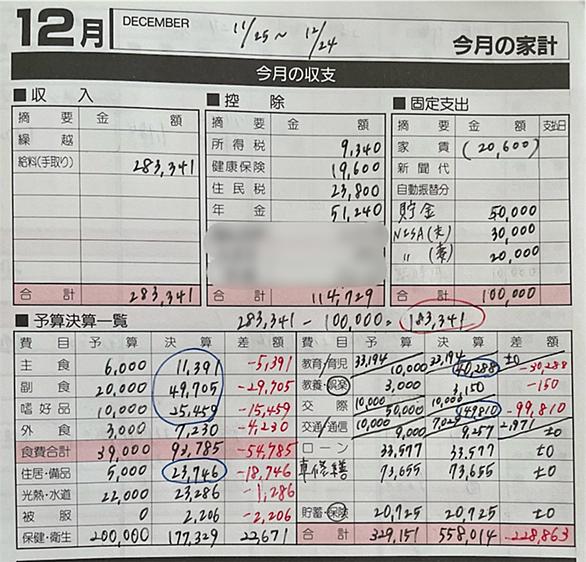 12月 DECEMBER 11/25 ~ 12/24 今月の家計
今月の収支
■収 入
摘 要 金 額
繰 越
給料(手取り) 283,341
合 計 283,341
■控 除
摘 要 金 額
所得税 9,340
健康保険 19,600
住民税 23,800
年 金 51,240
合 計 114,729
■固定支出
摘 要 金 額 支払日
家 賃 (20,600)
新聞代
自動振替分
貯金 50,000
NISA(夫) 30,000
〃 (妻) 20,000
合 計 100,000
■予算決算一覧 283,341 - 100,000 = 183,341
費 目 予 算 決 算 差 額
主 食 6,000 11,391 -5,391
副 食 20,000 49,705 -29,705
嗜好品 10,000 25,459 -15,459
外 食 3,000 7,230 -4,230
食費合計 39,000 93,785 -54,785
住居・備品 5,000 23,746 -18,746
光熱・水道 22,000 23,286 -1,286
被 服 0 2,206 -2,206
保健・衛生 200,000 177,329 22,671
費 目 予 算 決 算 差 額
教育/育児 33,194 10,000 33,194 40,288 ±0 -30,288
教養・娯楽 3,000 3,150 -150
交 際 10,000 50,000 10,000 -99,810
交通/通信 10,000 9,000 7,029 9,257 2,971 ±0
ローン 33,577 33,577 ±0
車修繕 73,655 73,655 ±0
貯蓄・保険 20,725 20,725 ±0
合 計 329,151 558,014 -228,863